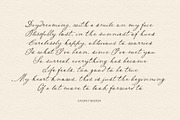 Daydreaming, with a smile on my face
Blissfully lost, in the summest of hues
Carelessly happy, oblivious to worries
Is what I've been, since I've met you
So surreal everything has become
Life feels, too good to be true
My heart knows, this is just the beginning
Of a lot more to look forward to